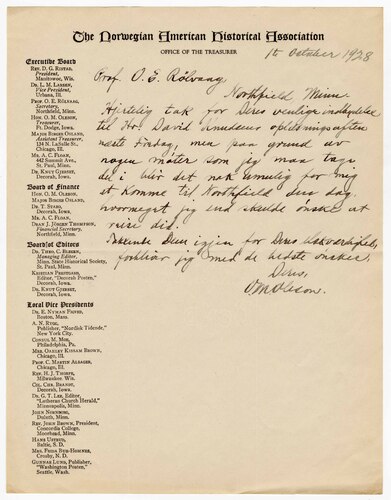 The Norwegian American Historical Association
OFFICE OF THE TREASURER
1st October 1928
Executive Board
Rev. D. G. Ristad,
President,
Manitowoc, Wis.
Dr. L. M. Larsen,
Vice President,
Urbana, Ill.
Prof. O. E. Rölvaag,
Secretary,
Northfield, Minn.
Hon. O. M. Oleson,
Treasurer,
Ft. Dodge, Iowa.
Major Birger Osland,
Assistant Treasurer,
134 N. LaSalle St.,
Chicago, Ill.
Mr. A. C. Floan,
St. Paul, Minn.
Dr. Knut Gjerset,
Decorah, Iowa.
Board of Finance
Hon. O. M. Oleson,
Major Birger Osland,
Dr. T. Stabo,
Decorah, Iowa.
Mr. A. C. Floan
Dean J. Jörgen Thompson,
Financial Secretary,
Northfield, Minn.
Board of Editors
Dr. Theo. C. Blegen,
Managing Editor,
Minn. State Historical Society,
St. Paul, Minn.
Kristian Prestgard,
Editor, "Decorah Posten,"
Decorah, Iowa.
Dr. Knut Gjerset,
Decorah, Iowa.
Local Vice Presidents
Boston, Mass.
A. N. Rygg,
Publisher, "Nordisk Tidende,"
New York City.
Consul M. Moe,
Philadelphia, Pa.
Chicago, Ill.
Prof. C. Martin Alsager,
Chicago, Ill.
Rev. H. J. Thorpe,
Milwaukee, Wis.
Col. Chr. Brandt,
Decorah, Iowa.
Dr. G. T. Lee, Editor,
"Lutheran Church Herald,"
Minneapolis, Minn.
Duluth, Minn.
Rev. John Brown, President,
Concordia College,
Moorhead, Minn.
Hans Ustrud,
Baltic, S. D.
Mrs. Frida Bue-Homnes,
Crosby, N. D.
Gunnar Lund, Publisher,
"Washington Posten,"
Seattle, Wash.
Prof. O. E. Rölvaag,
Northfield Minn.
Hjertelig tak for Deres venlige indbydelse
til Hon David Amudeus opletningsaften
næste Fredag, men paa grund av
nogen møter som jeg maa tage
del i blir det nok umulig for mig
at komme til Northfield den dag,
hvormeget jeg end skulde ønske at
Deres,
O M Oleson.